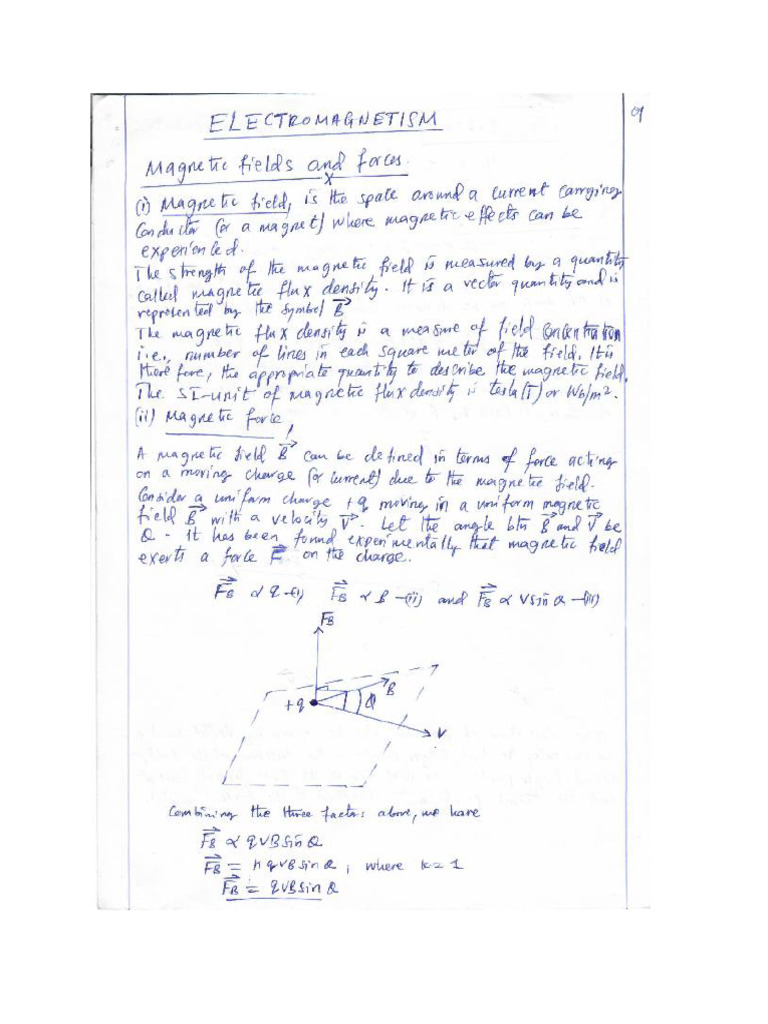 ELECTROMAGNETISM
01
Magnetic fields and forces.
(i) Magnetic field, is the space around a current carrying
Conductor (or a magnet) where magnetic effects can be
experienced.
The strength of the magnetic field is measured by a quantity
called magnetic flux density. It is a vector quantity and is
represented by the symbol B⃗
The magnetic flux density is a measure of field concentration
i.e., number of lines in each square meter of the field. It is
therefore, the appropriate quantity to describe the magnetic field.
The SI-unit of magnetic flux density is tesla (T) or Wb/m².
(ii) Magnetic force,
A magnetic field B⃗ can be defined in terms of force acting
on a moving charge (or current) due to the magnetic field.
Consider a uniform charge +q moving in a uniform magnetic
field B⃗ with a velocity V⃗. Let the angle btn B⃗ and V⃗ be
θ. It has been found experimentally that magnetic field
exerts a force F⃗ on the charge.
F⃗B ∝ q -(i) F⃗B ∝ B -(ii) and F⃗B ∝ V sin θ -(iii)
FB
B
+q
θ
V
Combining the three factors above, we have
F⃗B ∝ qVB sin θ
F⃗B = K qVB sin θ, where K = 1
F⃗B = qVB sin θ